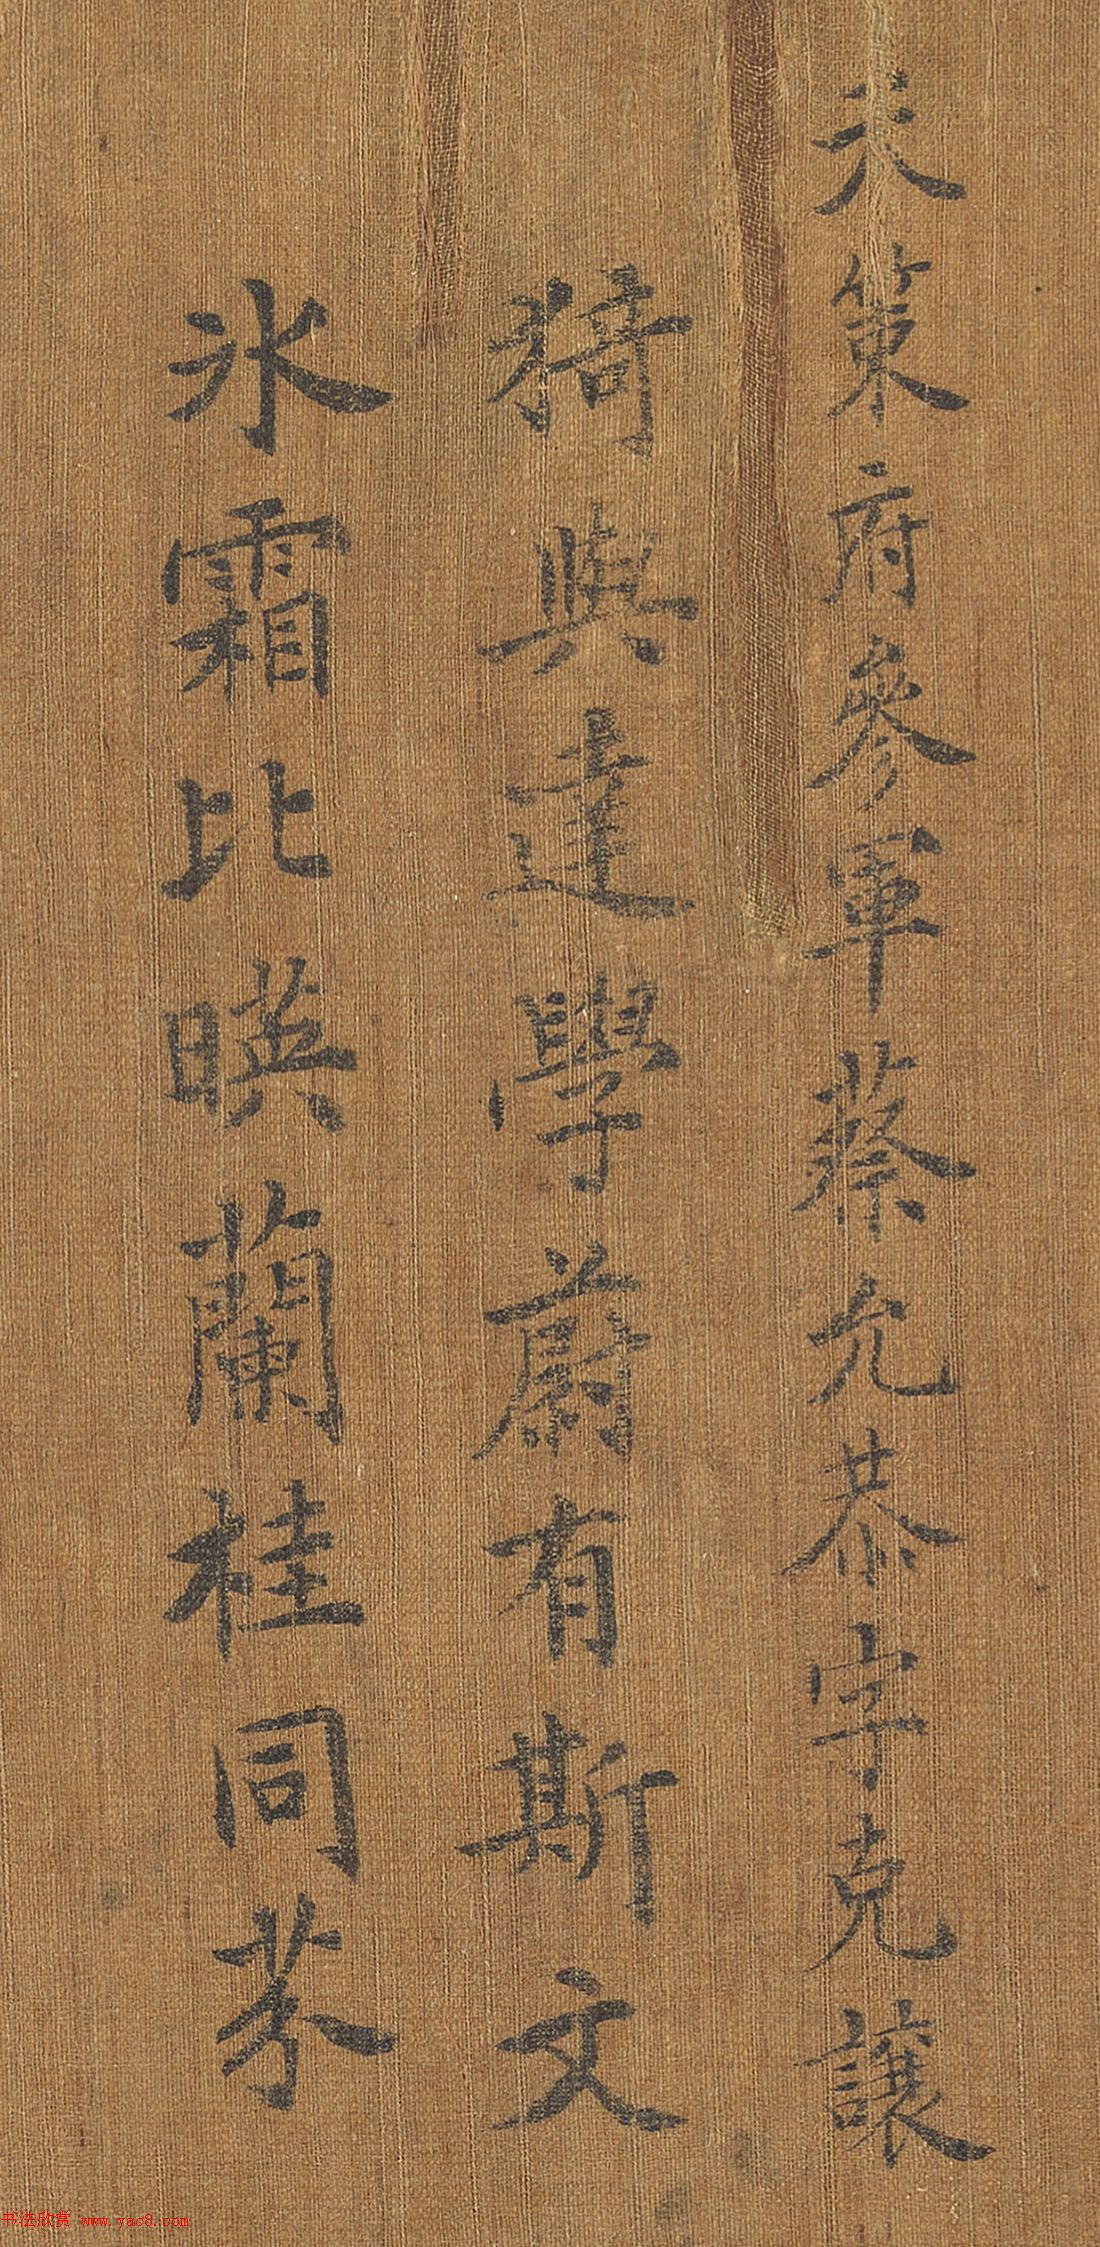 天策府參軍蔡允恭字克讓
猗與達學蔚有斯文
冰霜比暎蘭桂同芬
书法欣赏 www.yac8.com